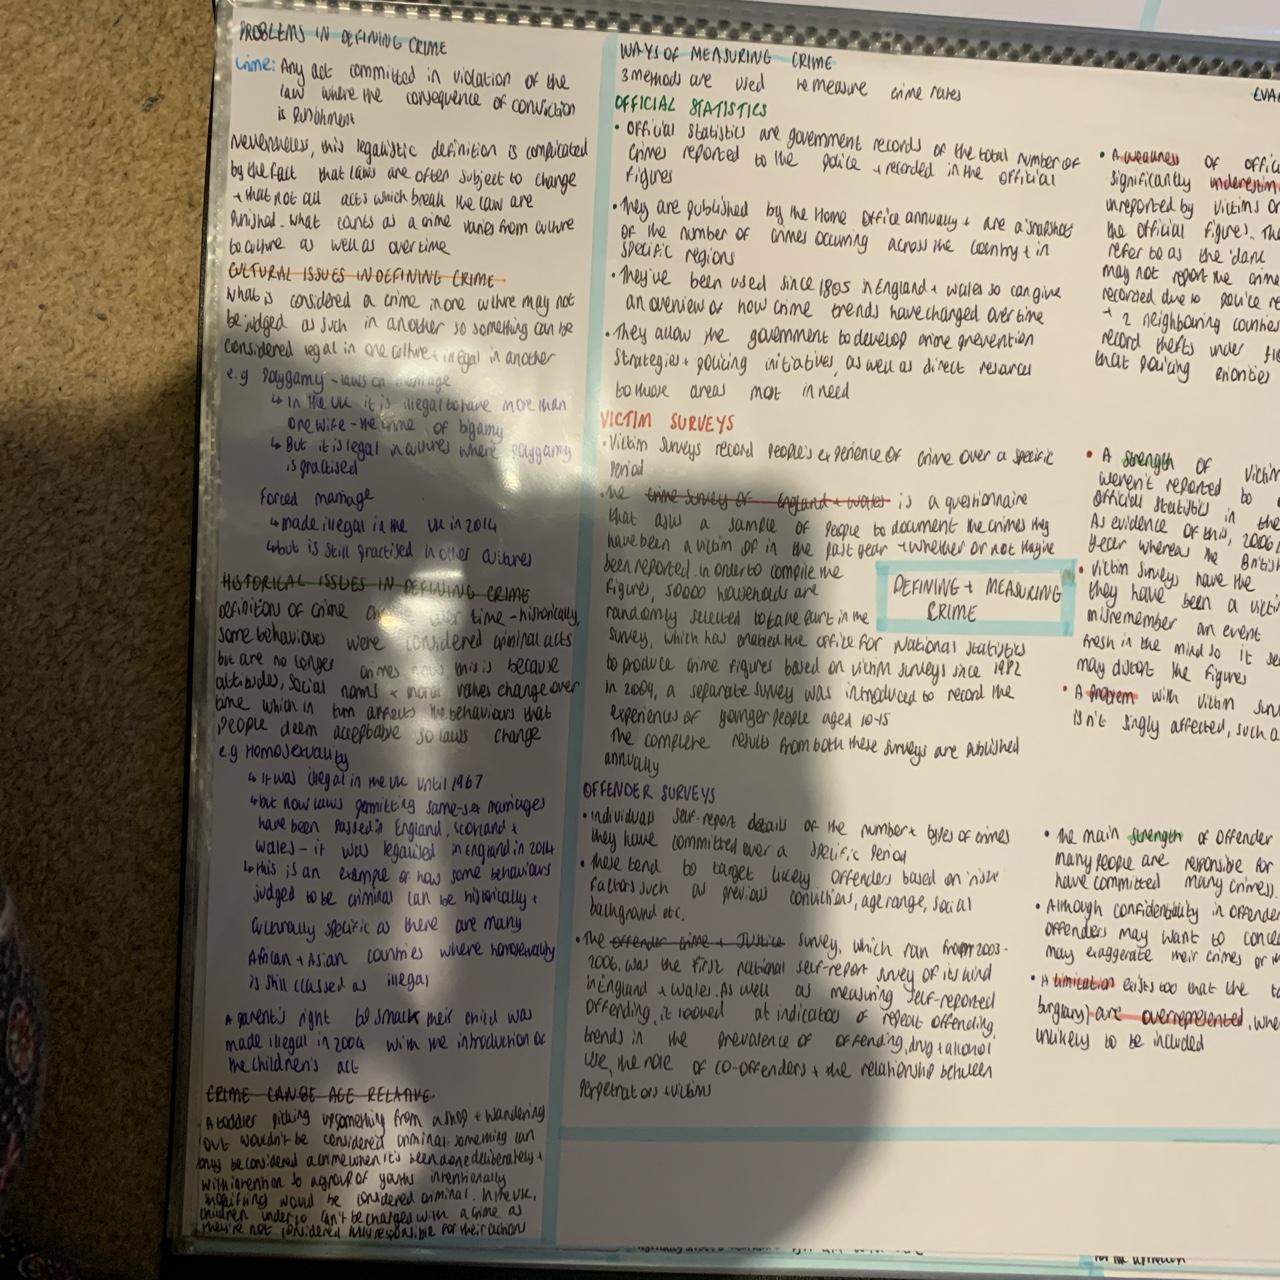 PROBLEMS IN DEFINING CRIME
Crime: Any act committed in violation of the
law where the consequence of conviction
is punishment
Nevertheless, this legalistic definition is complicated
by the fact that laws are often subject to change
+ that not all acts which break the law are
punished. What counts as a crime varies from culture
to culture as well as over time
CULTURAL ISSUES IN DEFINING CRIME
What is considered a crime in one culture may not
be judged as such in another so something can be
considered legal in one culture + illegal in another
e.g polygamy - laws on marriage
↳ In the UK it is illegal to have more than
one wife - the crime of bigamy
↳ But it is legal in cultures where polygamy
is practised
Forced marriage
↳ made illegal in the UK in 2014
↳ but is still practised in other cultures
HISTORICAL ISSUES IN DEFINING CRIME
Definition of crime over time - historically,
some behaviours were considered criminal acts
but are no longer crimes now this is because
attitudes, social norms + moral values change over
time which in turn affects the behaviours that
people deem acceptable so laws change
e.g Homosexuality
↳ It was illegal in the UK until 1967
↳ but now laws permitting same-sex marriages
have been passed in England, Scotland +
Wales - it was legalised in England in 2014
↳ this is an example of how some behaviours
judged to be criminal can be historically +
culturally specific as there are many
African + Asian countries where homosexuality
is still classed as illegal
A parent's right to smack their child was
made illegal in 2004 with the introduction of
the children's act
CRIME CAN BE AGE RELATIVE
A toddler picking up something from a shop + wandering
out wouldn't be considered criminal. Something can
only be considered a crime when it's been done deliberately +
with intention so a group of youths intentionally
shoplifting would be considered criminal. In the UK,
children under 10 can't be charged with a crime as
they're not considered fully responsible for their actions
WAYS OF MEASURING CRIME
3 methods are used to measure crime rates
OFFICIAL STATISTICS
• Official statistics are government records of the total number of
crimes reported to the police + recorded in the official
figures
• They are published by the Home Office annually + are a snapshot
of the number of crimes occuring across the country + in
specific regions
• They've been used since 1805 in England + Wales so can give
an overview of how crime trends have changed over time
• They allow the government to develop crime prevention
strategies + policing initiatives, as well as direct resources
to those areas most in need
VICTIM SURVEYS
• Victim surveys record people's experience of crime over a specific
period
• The crime survey of England + Wales is a questionnaire
that asks a sample of people to document the crimes they
have been a victim of in the past year + whether or not they've
been reported. In order to compile the
figures, 50000 households are
randomly selected to take part in the
survey, which has enabled the office for National Statistics
to produce crime figures based on victim surveys since 1982
In 2009, a separate survey was introduced to record the
experiences of younger people aged 10-15
The complete results from both these surveys are published
annually
DEFINING + MEASURING
CRIME
OFFENDER SURVEYS
• Individuals self-report details of the number + types of crimes
they have committed over a specific period
• These tend to target likely offenders based on 'risk'
factors such as previous convictions, age range, social
background etc.
• The offender crime + Justice survey, which ran from 2003-
2006, was the first national self-report survey of its kind
in England + Wales. As well as measuring self-reported
offending, it looked at indicators of repeat offending,
trends in the prevalence of offending, drug + alcohol
use, the role of co-offenders + the relationship between
perpetrators + victims
EVA
• A weakness of offic
significantly underestim
unreported by victims or
the official figures. The
refer to as the 'dark
may not report the crime
recorded due to police re
+ 2 neighbouring counties
record thefts under
that policing priorities
• A strength of victim
weren't reported to
official statistics in the
As evidence of this, 2006
year whereas the British
• Victim surveys have the
they have been a victim
misremember an event
fresh in the mind so it se
may distort the figures
• A problem with victim surv
isn't singly affected, such a
• The main strength of offender
many people are responsible for
have committed many crimes).
• Although confidentiality in offender
offenders may want to concea
may exaggerate their crimes or
• A limitation exists too that the
burglary) are overrepresented, whe
unlikely to be included